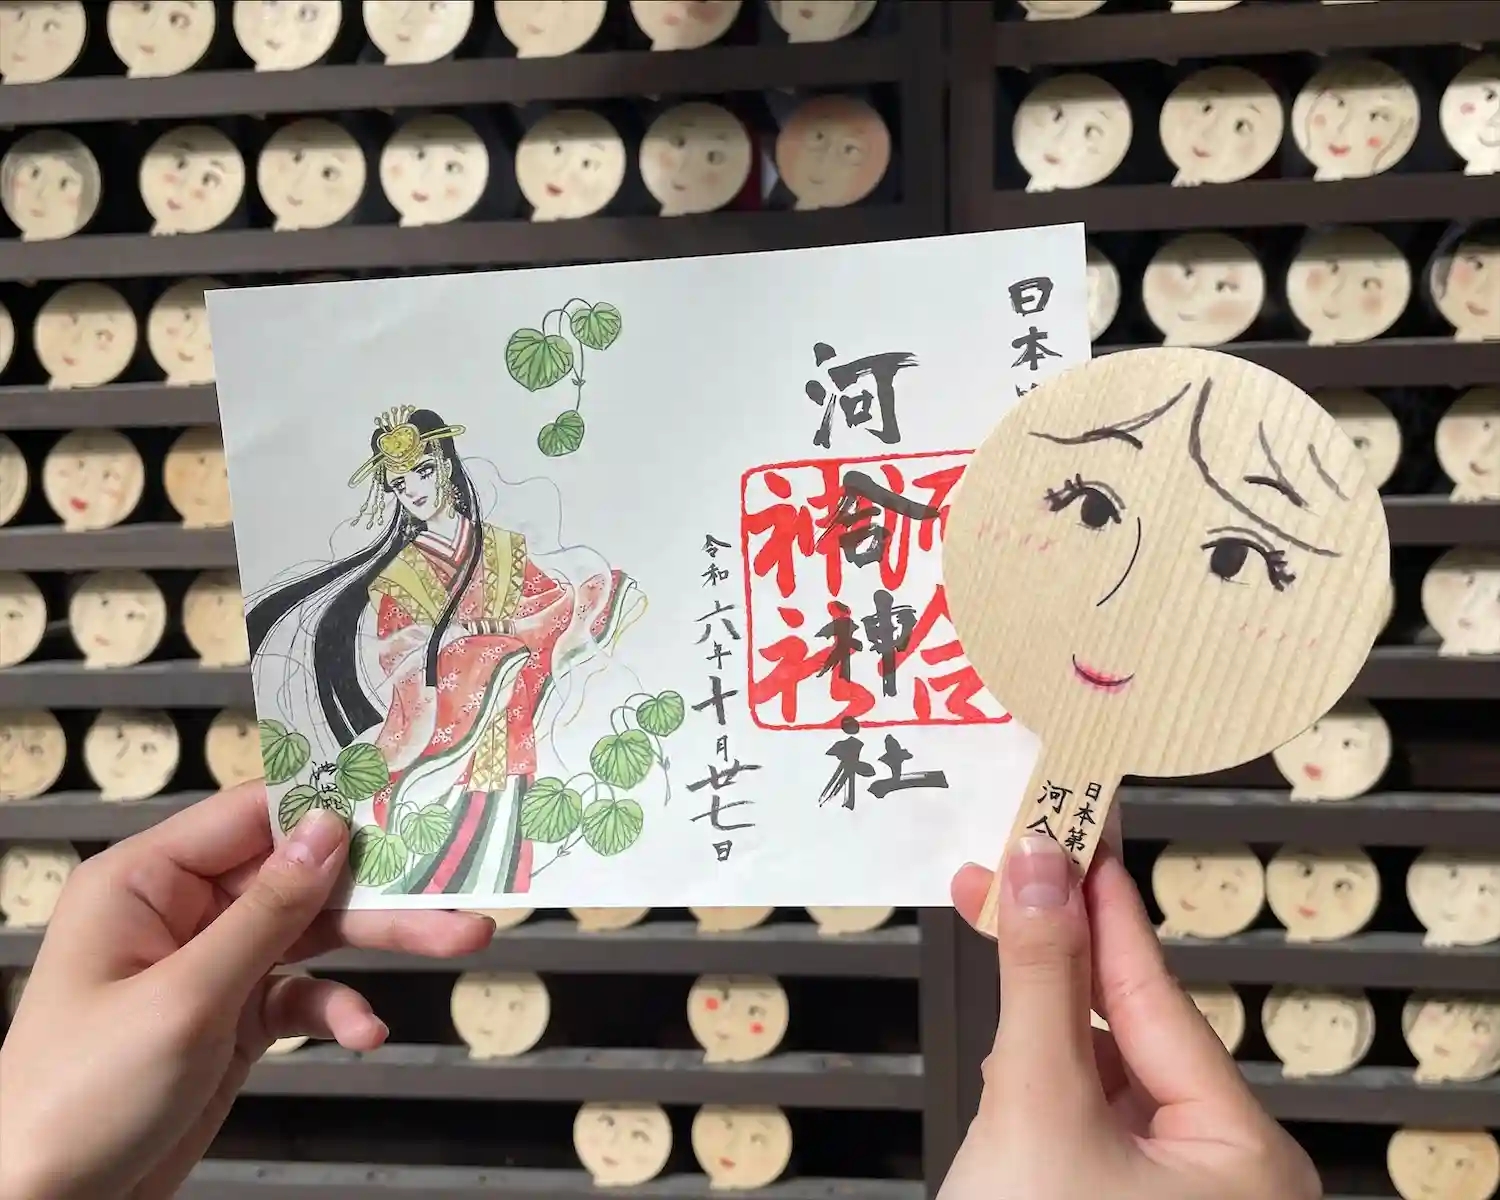 日本
河合神社
河合神社
令和六年十月廿七日
日本第
河合